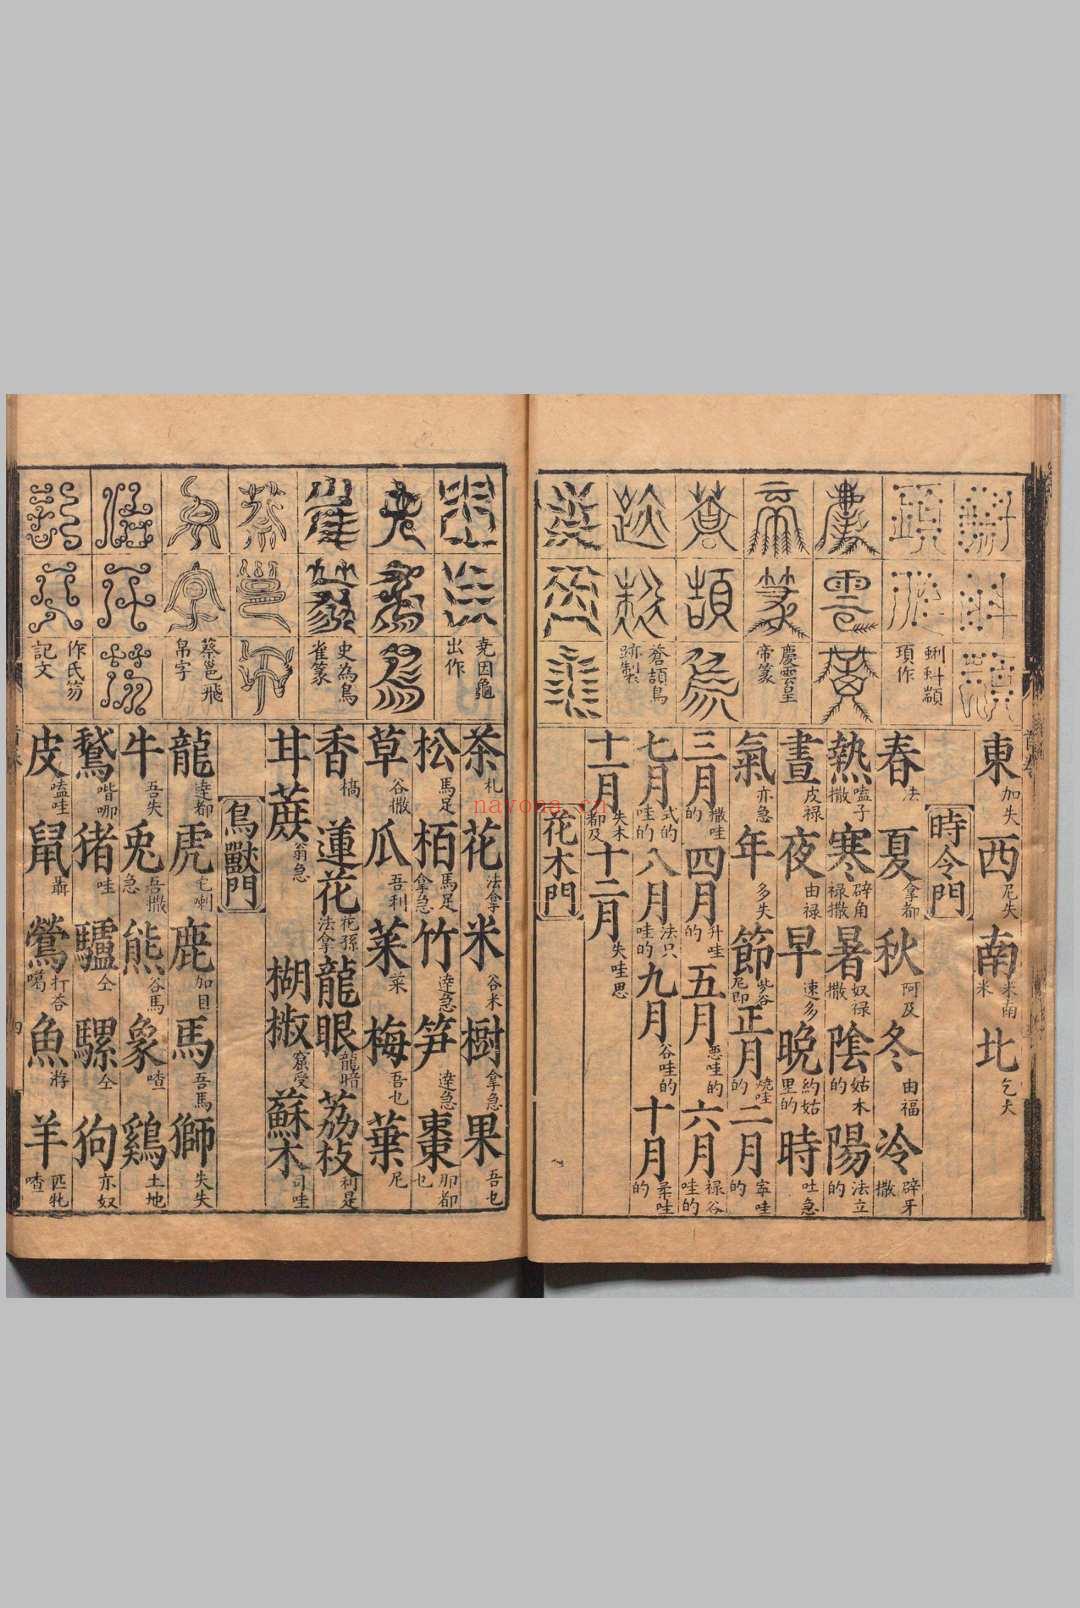 蝌蚪顓
頊作
慶雲皇
帝篆
蒼頡鳥
跡製
東 加失 西 尼失 南 米南米 北 乞大
時令門
春 法 夏 拿都 秋 阿及 冬 由福 冷 辟牙撒
熱 嗑子撒 寒 辟角禄撒 暑 奴禄撒 陰 姑木的 陽 法立的
晝 皮禄 夜 由禄 早 速多 晚 約姑里的 時 吐急
氣 亦急 年 多失 節 紫谷尼即 正月 燒哇的 二月 寧哇的
三月 撒哇的 四月 升哇的 五月 悪哇的 六月 禄谷哇的
七月 式的哇的 八月 法只哇的 九月 谷哇的 十月 柔哇的
十一月 失木都及 十二月 失哇思
花木門
堯因龜
出作
史為鳥
雀篆
蔡邕飛
帛字
作氏笏
記文
茶 札 花 法拿 米 谷米 樹 拿急 果 吾乜
松 馬足 栢 馬足拿急 竹 達急 笋 達急 棗 那都乜
草 谷撒 瓜 吾利 菜 菜 梅 吾乜 葉 尼
香 槁 蓮花 花孫法拿 龍眼 龍暗 荔枝 利是
甘蔗 翁急 榭椒 窟受 蘇木 司哇
鳥獸門
龍 達都 虎 它喇 鹿 加目 馬 吾馬 獅 失失
牛 吾失 兎 吾撒急 熊 谷馬 象 喳 鷄 土地
鵝 喈哪 猪 哇 驢 仝 騾 仝 狗 亦奴
皮 嗑哇 鼠 聶 鶯 打杏噶 魚 游 羊 匹牝喳
四
nayona.cn